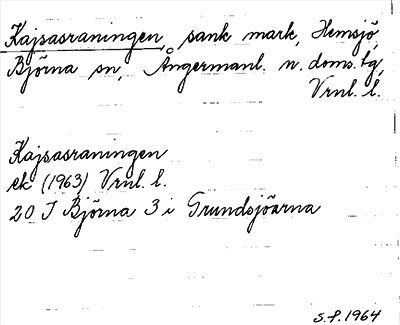 Kajsasraningen, sank mark, Hemsjö,
Björna sn, Ångermanl. n. doms. tg,
Vrnl. l.
Kajsasraningen
ek (1963) Vrnl. l.
20 J Björna 3 i Grundsjöarna
S.F. 1964